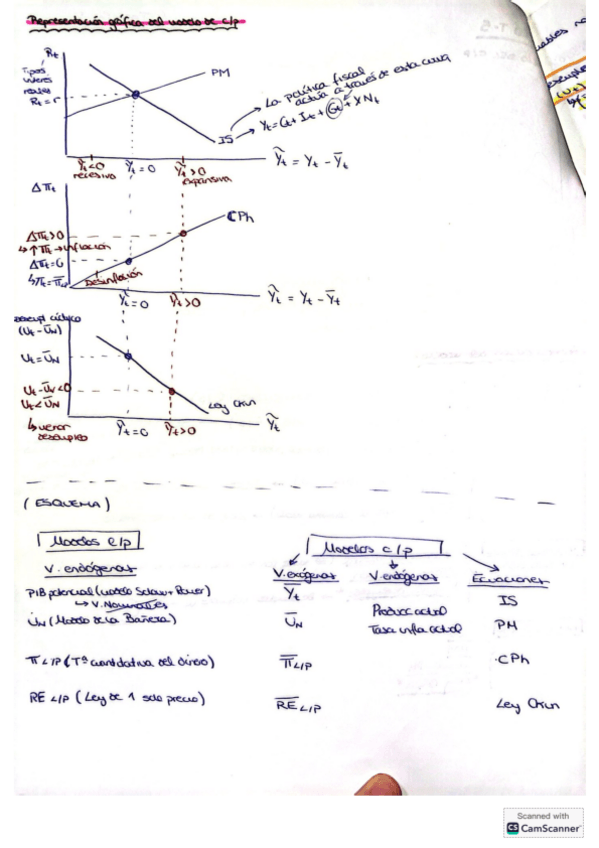 Representación gráfica del modelo de c/p
Rt
Tipos
interés
reales
Rt = r
PM
IS
La política fiscal
actúa a través de esta curva
Yt = Ct + It + Gt + XNt
Ỹt<0
recesivo
Ỹt = 0
Ỹt>0
expansiva
Ỹt = Yt - Ȳt
Δπt
CPh
Δπt>0
↳ ↑πt → inflación
Δπt=0
↳ πt = π̄L/P
Desinflación
Ỹt = 0
Ỹt>0
Ỹt = Yt - Ȳt
desempl cíclico
(Ut - ŪN)
Ut = ŪN
Ut - ŪN<0
Ut < ŪN
↳ menor
desempleo
Ley Okun
Ỹt=0
Ỹt>0
Ỹt
(ESQUEMA)
Modelos l/p
V. endógenas
PIB potencial (modelo Solow + Romer)
↳ V. Nominales
UN (Modelo de la Bañera)
π L/P (Tª cuantitativa del dinero)
RE L/P (Ley de 1 solo precio)
Modelos c/p
V. exógenas
Ȳt
ŪN
π̄L/P
R̄E L/P
V. endógenas
Producc actual
Tasa infla actual
Ecuaciones
IS
PM
CPh
Ley Okun
Scanned with
CS CamScanner